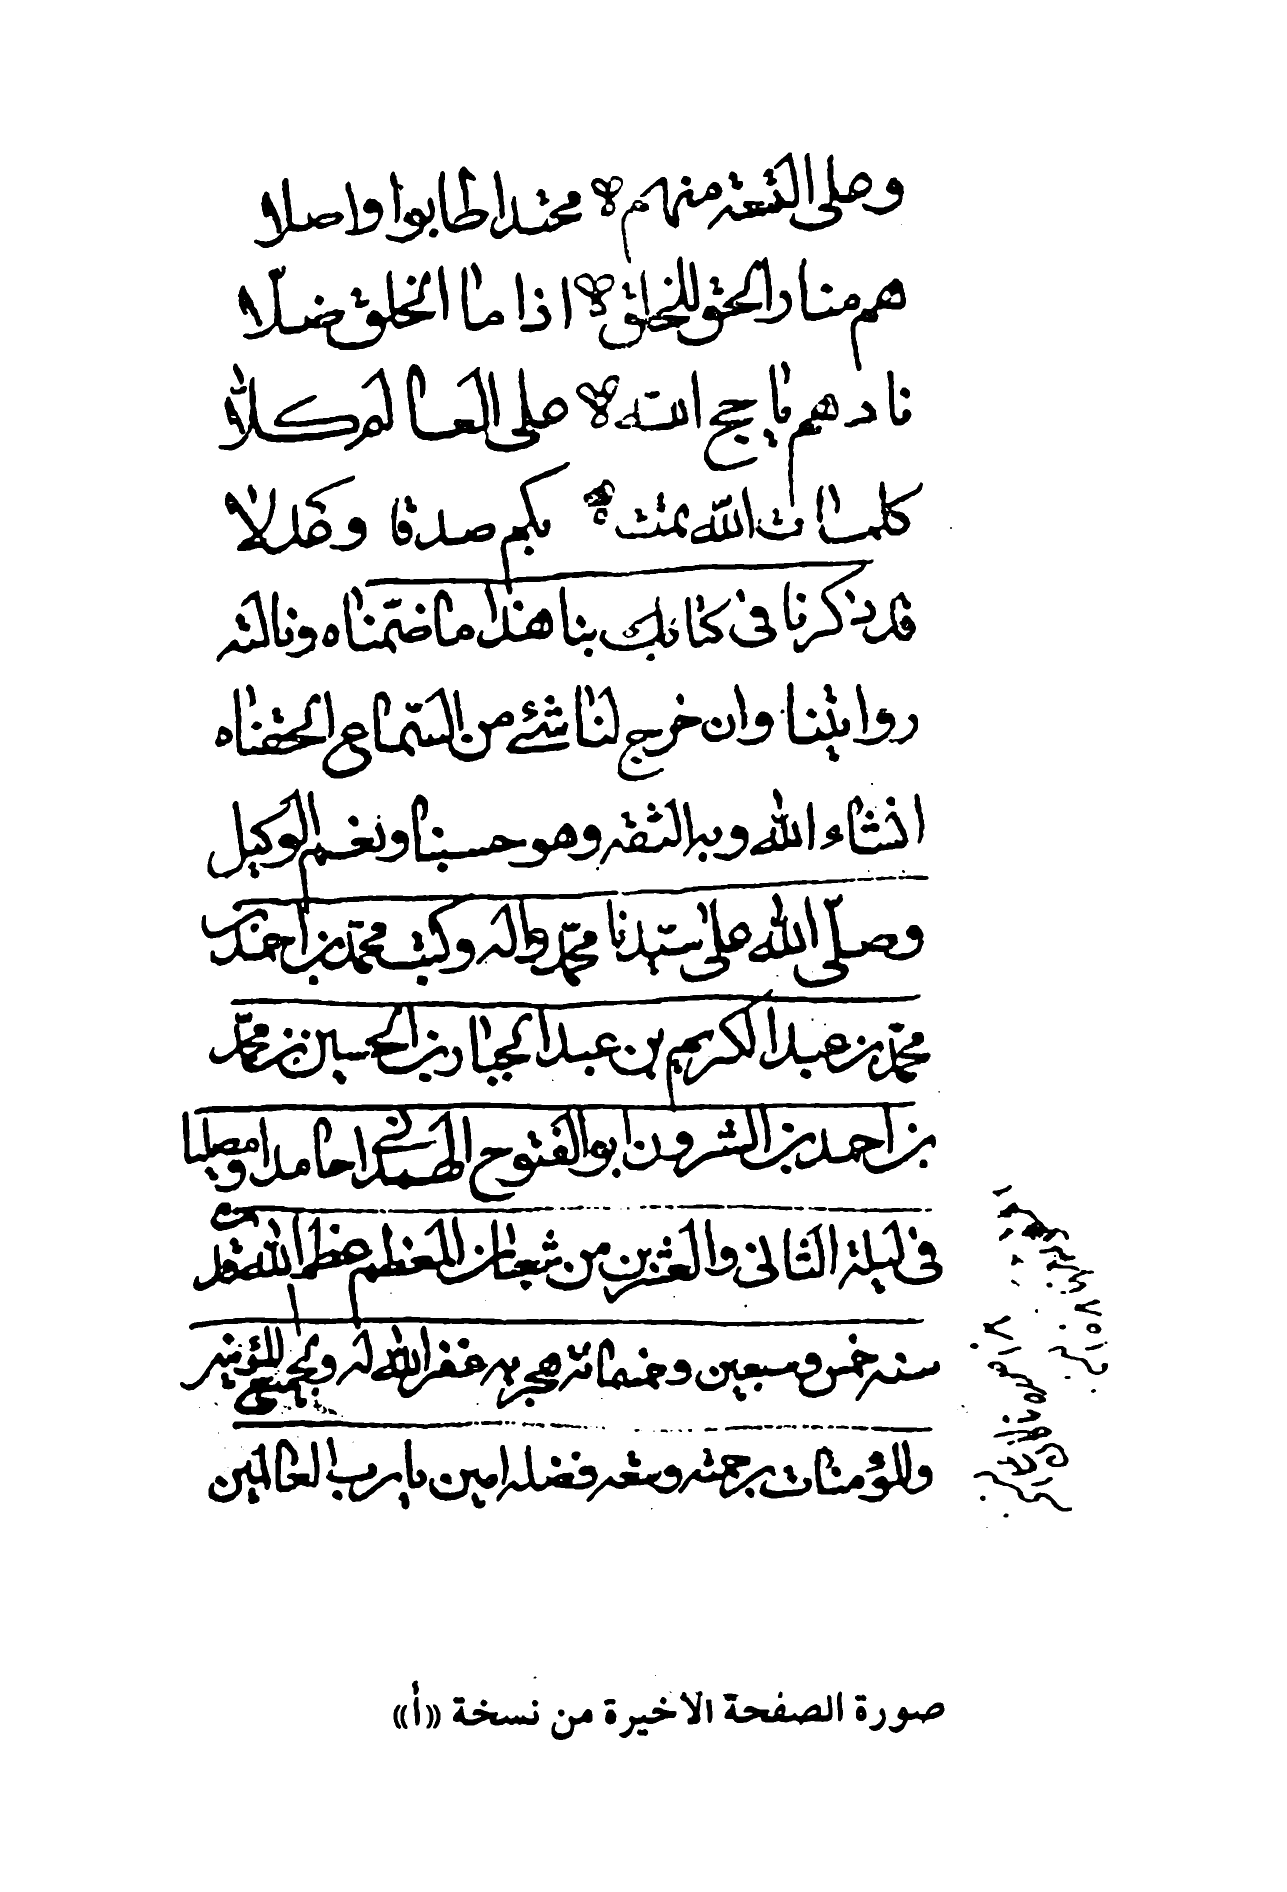 وعلى التسعة منهم محتدا طابوا واصلا
هم منار الحق للخلق اذا ما الخلق ضلّا
نادهم يا حجج الله على العالم كلّا
كلمات الله تمت بكم صدقا وعدلا
قد ذكرنا في كتابك بنا هذا ما ضمّناه ونالته
روايتنا وان خرج لنا شئ من السّماع الحقناه
انشاء الله وبه الثقة وهو حسبنا ونعم الوكيل
وصلّى الله على سيّدنا محمّد واله وكتب محمّد بن احمد بن
محمّد بن عبد الكريم بن عبد الجبار بن الحسين بن محمّد
بن احمد بن الشرون ابو الفتوح الهمداني حامدا ومصليا
في ليلة الثاني والعشرين من شعبان المعظم عظم الله قدره
سنه خمس وسبعين وخمسمائة هجريه غفر الله له ولجميع المؤمنين
والمؤمنات برحمته وسعة فضله امين يا رب العالمين
صورة الصفحة الاخيرة من نسخة «أ»